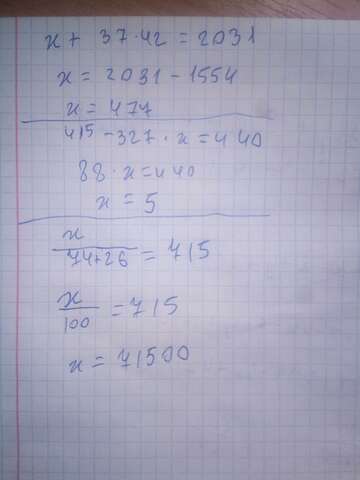 x + 37 · 42 = 2031
x = 2031 - 1554
x = 477
415 - 327 · x = 440
88 · x = 440
x = 5
x / 74+26 = 715
x / 100 = 715
x = 71500